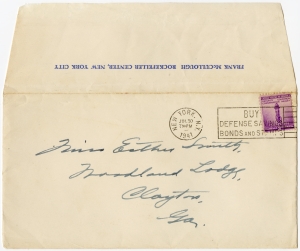 FRANK McCULLOUGH ROCKEFELLER CENTER, NEW YORK CITY
NEW YORK, N.Y.
7 PM
1941
BUY
DEFENSE SA
BONDS AND ST
Miss Esther Smith,
Woodland Lodge,
Clayton,
Ga.